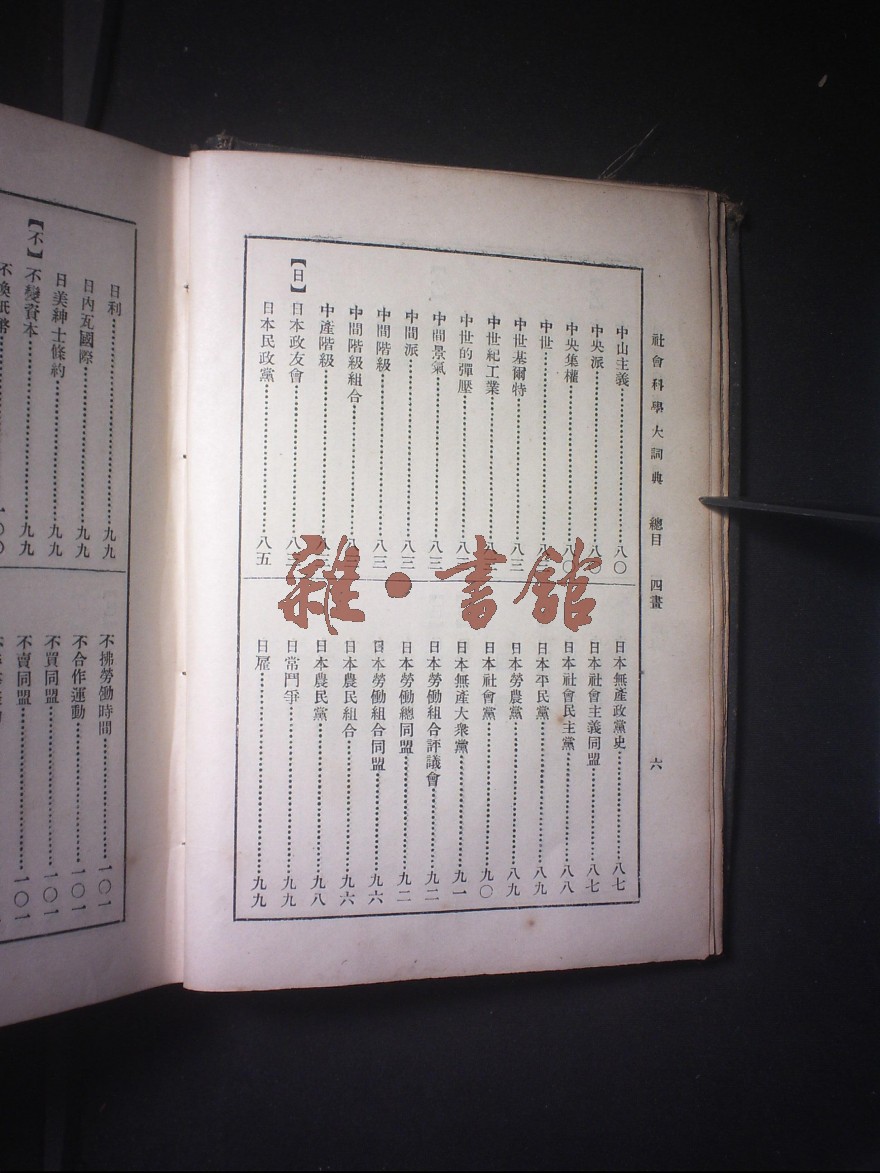 社會科學大詞典 總目 四畫 六
中山主義 八〇
中央派 八〇
中央集權 八〇
中世
中世基爾特 八三
中世紀工業
中世的彈壓
中間景氣 八三
中間派 八三
中間階級 八三
中間階級組合
中產階級
【日】日本政友會
日本民政黨 八五
日本無產政黨史 八七
日本社會主義同盟 八七
日本社會民主黨 八八
日本平民黨 八九
日本勞農黨 八九
日本社會黨 九〇
日本無產大衆黨 九一
日本勞働組合評議會 九二
日本勞働總同盟 九二
日本勞働組合同盟 九六
日本農民組合 九六
日本農民黨 九八
日常鬥爭 九九
日雇 九九
日利 九九
日內瓦國際 九九
日美紳士條約 九九
【不】不變資本 九九
不換紙幣 一〇〇
不拂勞働時間 一〇一
不合作運動 一〇一
不買同盟 一〇一
不賣同盟 一〇一
雜·書館